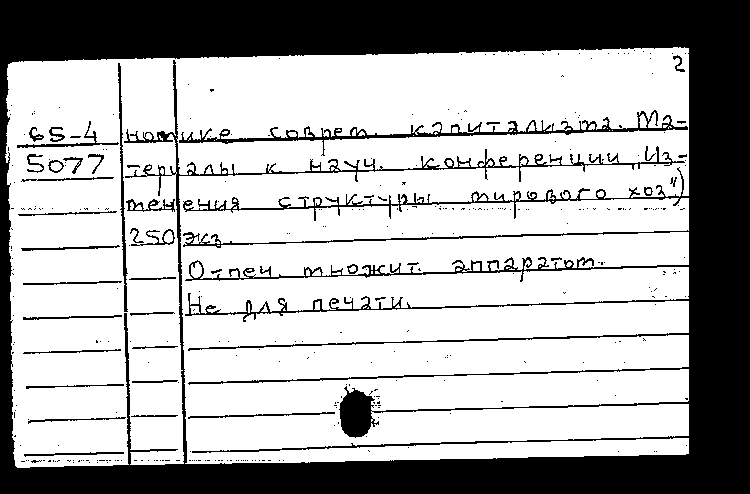 2
65-4 номике соврем. капитализма. Ма-
5077 териалы к науч. конференции „Из-
менения структуры мирового хоз")
250 экз.
Отпеч. множит. аппаратом.
Не для печати.